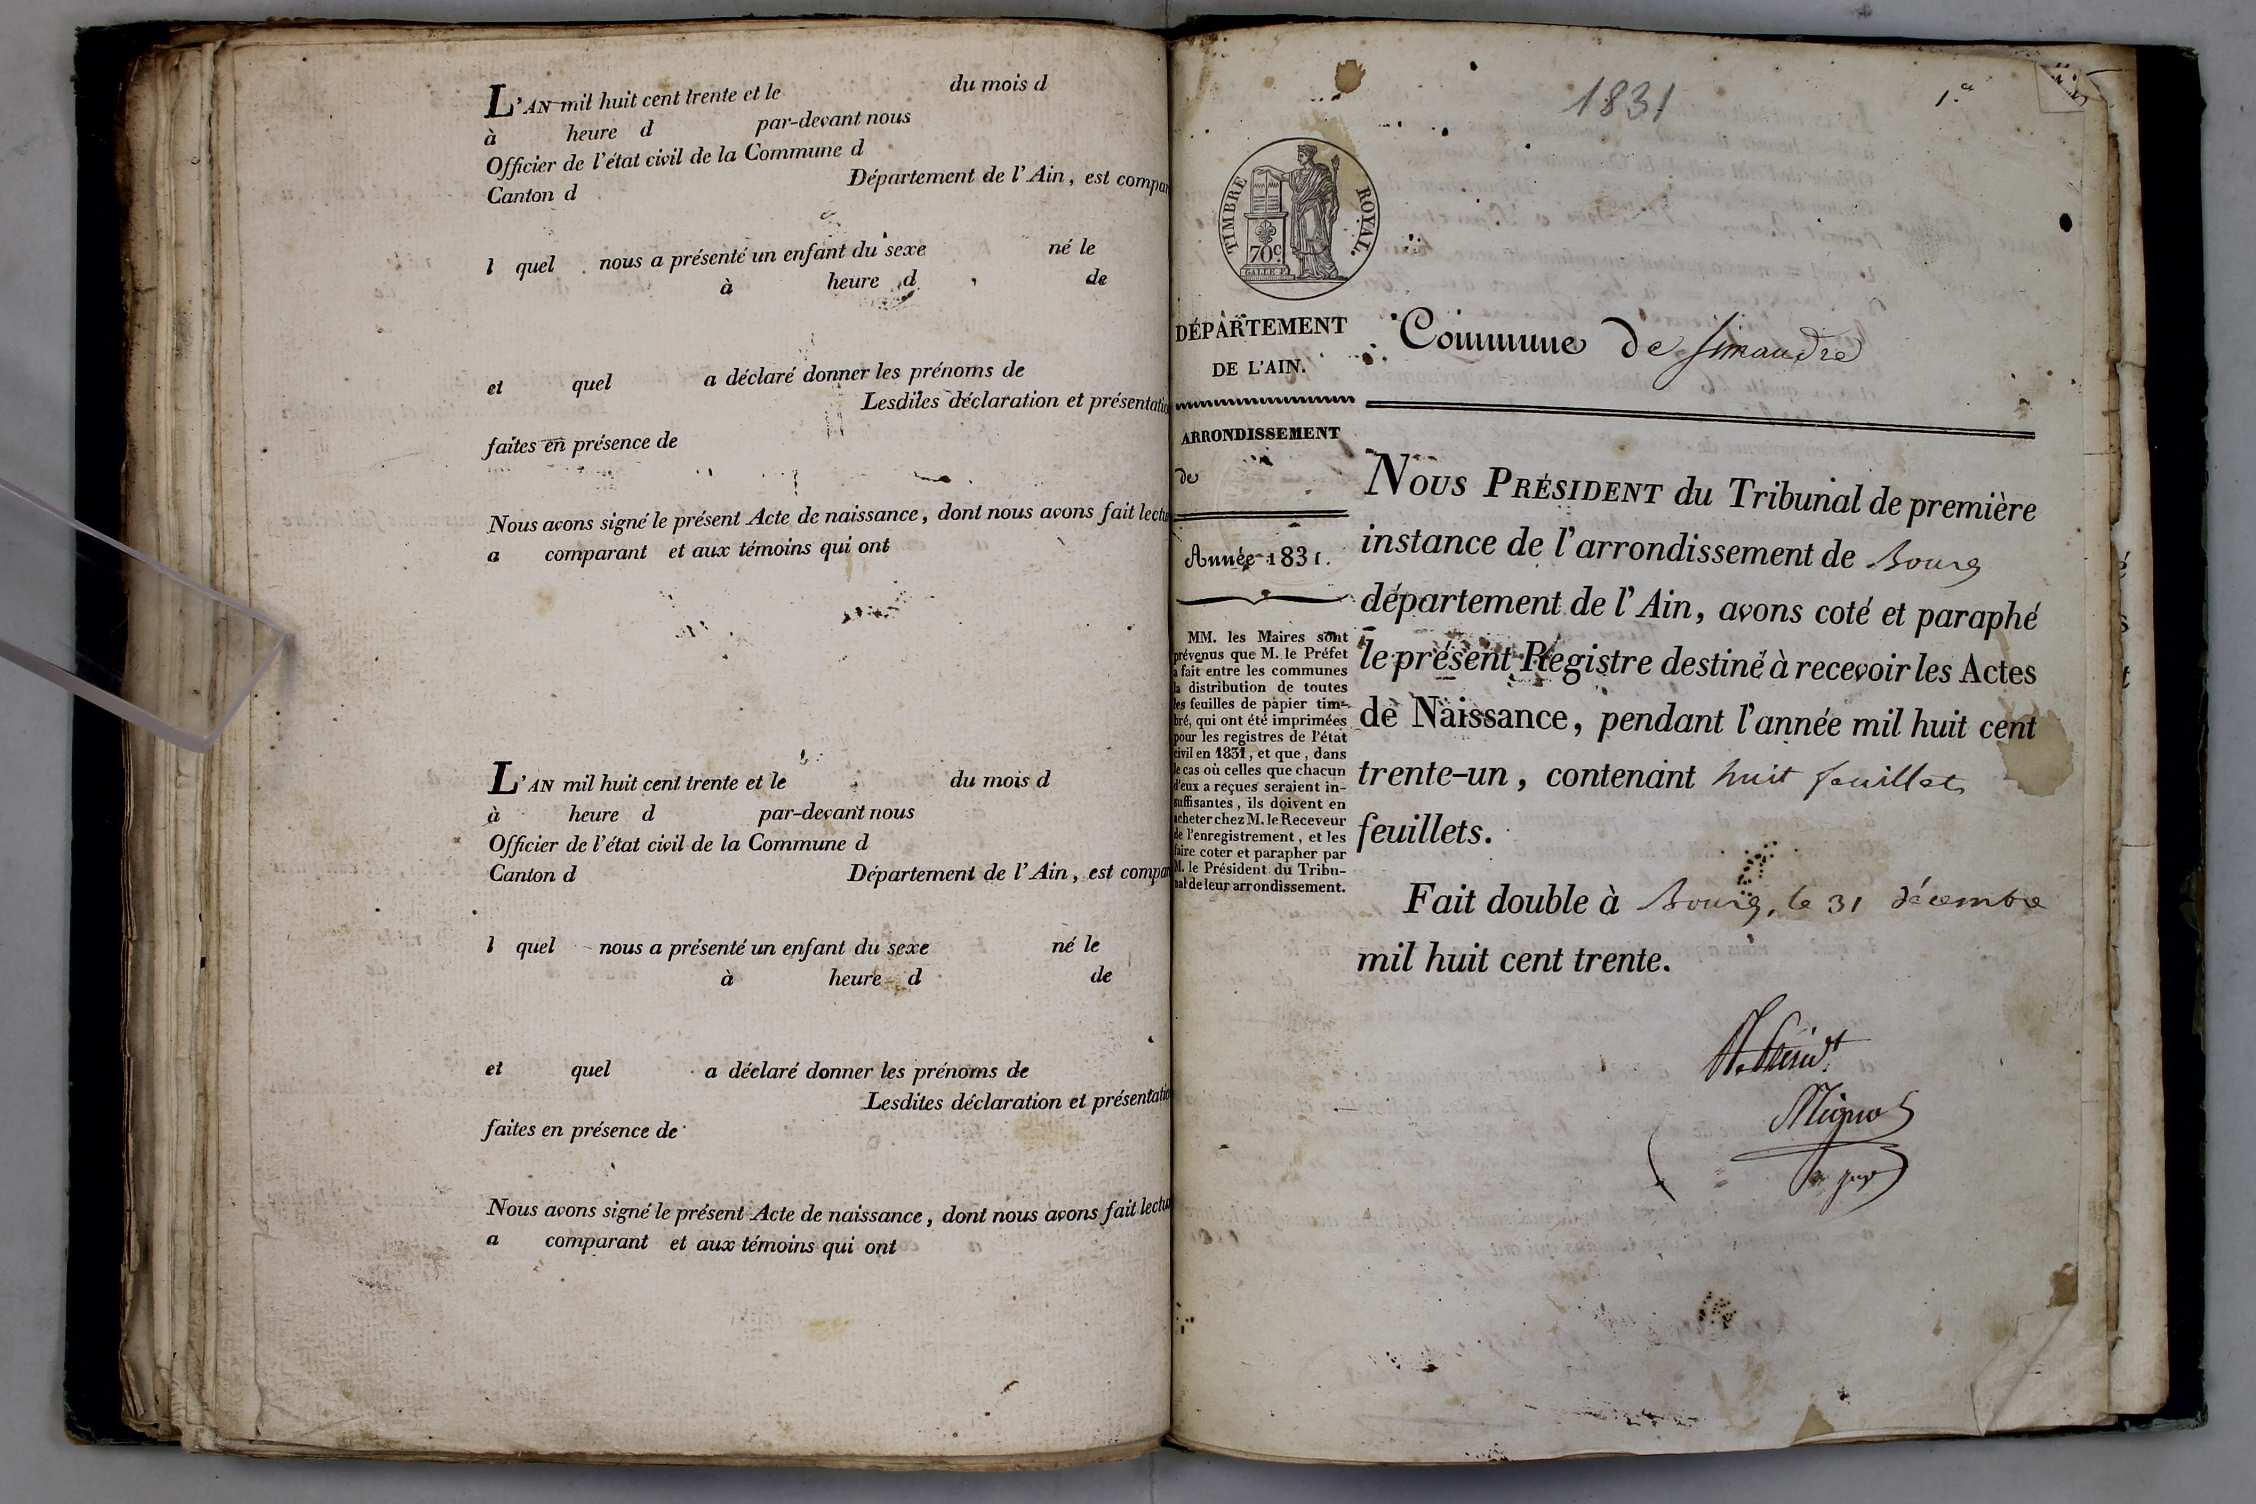 L'AN mil huit cent trente et le du mois d
à heure d par-devant nous
Officier de l'état civil de la Commune d
Canton d Département de l'Ain, est compar
l quel nous a présenté un enfant du sexe né le
à heure d de
et quel a déclaré donner les prénoms de
Lesdites déclaration et présentatio
faites en présence de
Nous avons signé le présent Acte de naissance, dont nous avons fait lectu
a comparant et aux témoins qui ont
L'AN mil huit cent trente et le du mois d
à heure d par-devant nous
Officier de l'état civil de la Commune d
Canton d Département de l'Ain, est compar
l quel nous a présenté un enfant du sexe né le
à heure d de
et quel a déclaré donner les prénoms de
Lesdites déclaration et présentatio
faites en présence de
Nous avons signé le présent Acte de naissance, dont nous avons fait lectu
a comparant et aux témoins qui ont
1831
TIMBRE ROYAL.
70c.
DÉPARTEMENT
DE L'AIN.
ARRONDISSEMENT
de
Année 1831.
MM. les Maires sont
prévenus que M. le Préfet
a fait entre les communes
la distribution de toutes
les feuilles de papier tim-
bré, qui ont été imprimées
pour les registres de l'état
civil en 1831, et que, dans
le cas où celles que chacun
d'eux a reçues seraient in-
suffisantes, ils doivent en
acheter chez M. le Receveur
de l'enregistrement, et les
faire coter et parapher par
M. le Président du Tribu-
nal de leur arrondissement.
Commune de Simandre
NOUS PRÉSIDENT du Tribunal de première
instance de l'arrondissement de Bourg
département de l'Ain, avons coté et paraphé
le présent Régistre destiné à recevoir les Actes
de Naissance, pendant l'année mil huit cent
trente-un, contenant huit feuillets
feuillets.
Fait double à Bourg, le 31 décembre
mil huit cent trente.